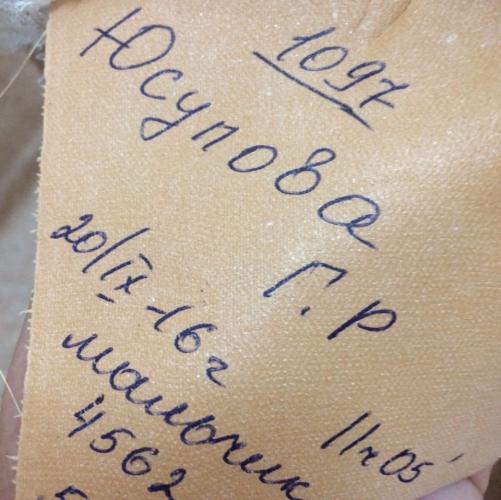 1097
Юсупова
Г.Р
20/IX-16г
мальчик 11ч05'
4562